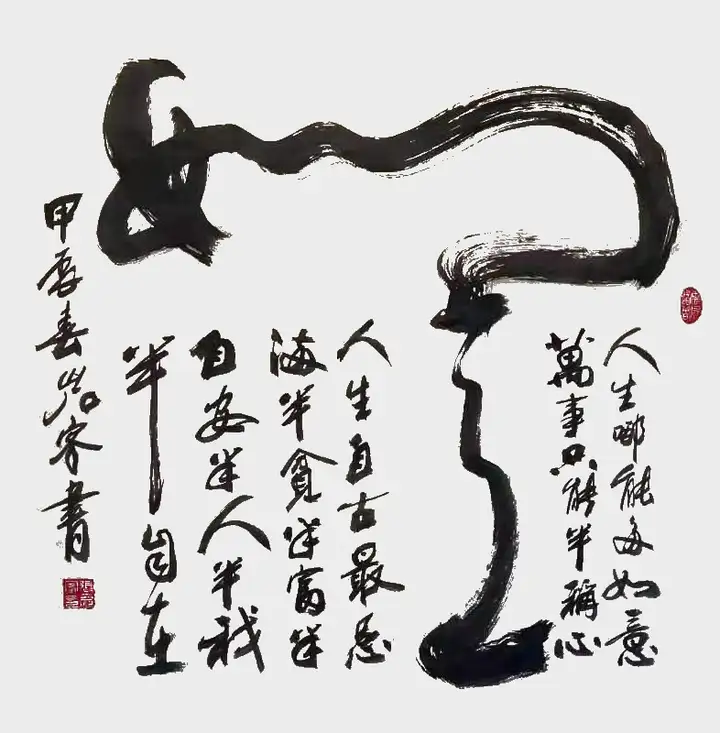 人生哪能多如意
萬事只能半稱心
如意
人生自古最忌
滿半貧半富半
自安半人半我
半自在
甲辰春岩客書